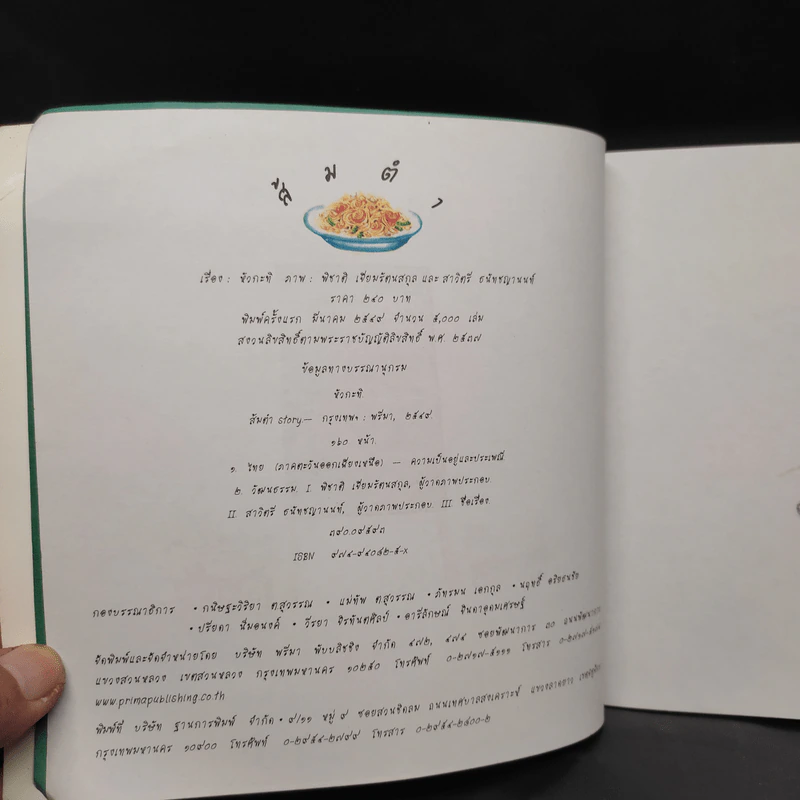 ส้มตำ
เรื่อง : หัวกะทิ ภาพ : พิชาติ เยี่ยมรัตนสกุล และ สาวิตรี ธนัทชญานนท์
ราคา ๒๔๐ บาท
พิมพ์ครั้งแรก มีนาคม ๒๕๔๙ จำนวน ๕,๐๐๐ เล่ม
สงวนลิขสิทธิ์ตามพระราชบัญญัติลิขสิทธิ์ พ.ศ. ๒๕๓๗
ข้อมูลทางบรรณานุกรม
หัวกะทิ.
ส้มตำ story— กรุงเทพฯ : พรีมา, ๒๕๔๙.
๑๖๐ หน้า.
๑. ไทย (ภาคตะวันออกเฉียงเหนือ) — ความเป็นอยู่และประเพณี
๒. วัฒนธรรม. I. พิชาติ เยี่ยมรัตนสกุล, ผู้วาดภาพประกอบ.
II. สาวิตรี ธนัทชญานนท์, ผู้วาดภาพประกอบ. III. ชื่อเรื่อง
๓๙๐.๐๙๕๙๓
ISBN ๙๗๔-๙๔๐๘๒-๕-x
กองบรรณาธิการ • กนิษฐะวิริยา ต.สุวรรณ • แม่ทัพ ต.สุวรรณ • ภัทรมน เอกกูล • นฤทธิ์
• ปรียดา นิ่มอนงค์ • วีรยา จิรทันตศิลป์ • อารีลักษณ์ จินดาอุดมเศรษฐ์
จัดพิมพ์และจัดจำหน่ายโดย บริษัท พรีมา พับบลิชชิง จำกัด ๔๗๒, ๔๗๔ ซอยพัฒนาการ ๓๐ ถนนพัฒนาการ
แขวงสวนหลวง เขตสวนหลวง กรุงเทพมหานคร ๑๐๒๕๐ โทรศัพท์ ๐-๒๗๑๗-๕๑๑๑ โทรสาร
www.primapublishing.co.th
พิมพ์ที่ บริษัท ฐานการพิมพ์ จำกัด • ๙/๑๑ หมู่ ๙ ซอยสวนชิดลม ถนนเทศบาลสงเคราะห์ แขวงลาดยาว
กรุงเทพมหานคร ๑๐๙๐๐ โทรศัพท์ ๐-๒๙๕๔-๒๗๙๙ โทรสาร ๐-๒๙๕๔-๒๘๐๐-๒